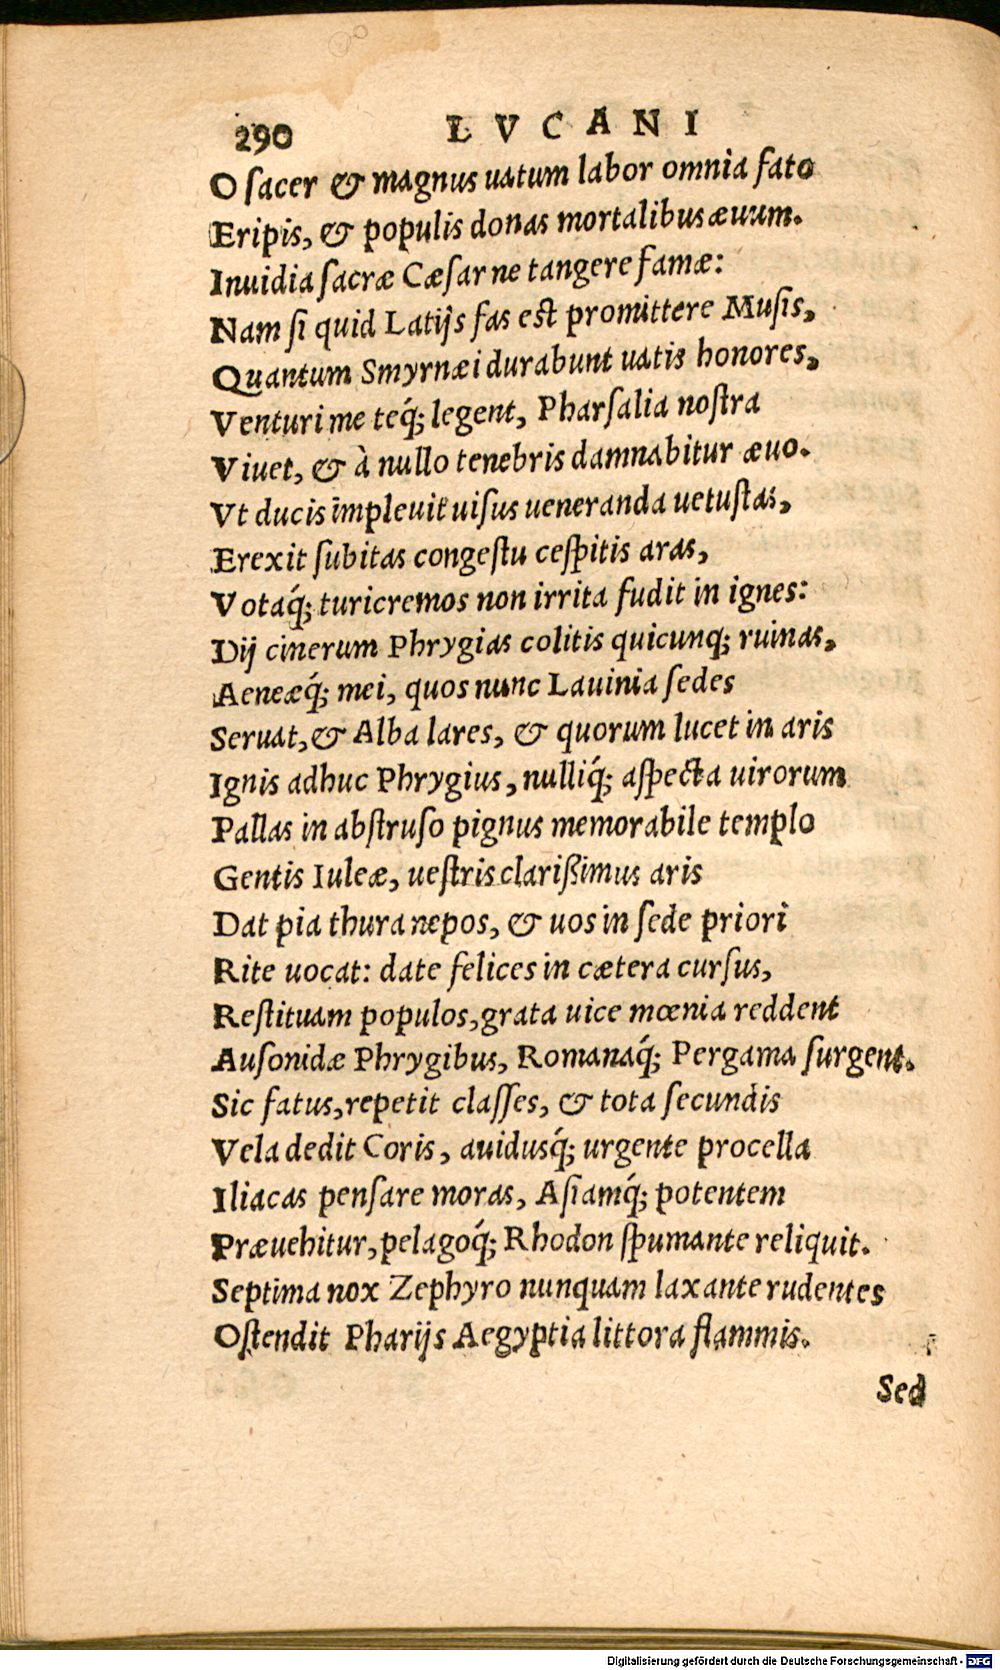 290 LVCANI
O ſacer & magnus uatum labor omnia fato
Eripis, & populis donas mortalibus æuum.
Inuidia ſacræ Cæſar ne tangere famæ:
Nam ſi quid Latijs fas eſt promittere Muſis,
Quantum Smyrnæi durabunt uatis honores,
Venturi me teq́; legent, Pharſalia noſtra
Viuet, & à nullo tenebris damnabitur æuo.
Vt ducis impleuit uiſus ueneranda uetuſtas,
Erexit ſubitas congeſtu ceſpitis aras,
Votaq́; turicremos non irrita fudit in ignes:
Dij cinerum Phrygias colitis quicunq; ruinas,
Aeneæq́; mei, quos nunc Lauinia ſedes
Seruat, & Alba lares, & quorum lucet in aris
Ignis adhuc Phrygius, nulliq́; aſpecta uirorum
Pallas in abſtruſo pignus memorabile templo
Gentis Iuleæ, ueſtris clarißimus aris
Dat pia thura nepos, & uos in ſede priori
Rite uocat: date felices in cætera curſus,
Reſtituam populos, grata uice mœnia reddent
Auſonidæ Phrygibus, Romanaq́; Pergama ſurgent.
Sic fatus, repetit claſſes, & tota ſecundis
Vela dedit Coris, auidusq́; urgente procella
Iliacas penſare moras, Aſiamq́; potentem
Præuehitur, pelagoq́; Rhodon ſpumante reliquit.
Septima nox Zephyro nunquam laxante rudentes
Oſtendit Pharijs Aegyptia littora flammis.
Sed
Digitalisierung gefördert durch die Deutsche Forschungsgemeinschaft - DFG